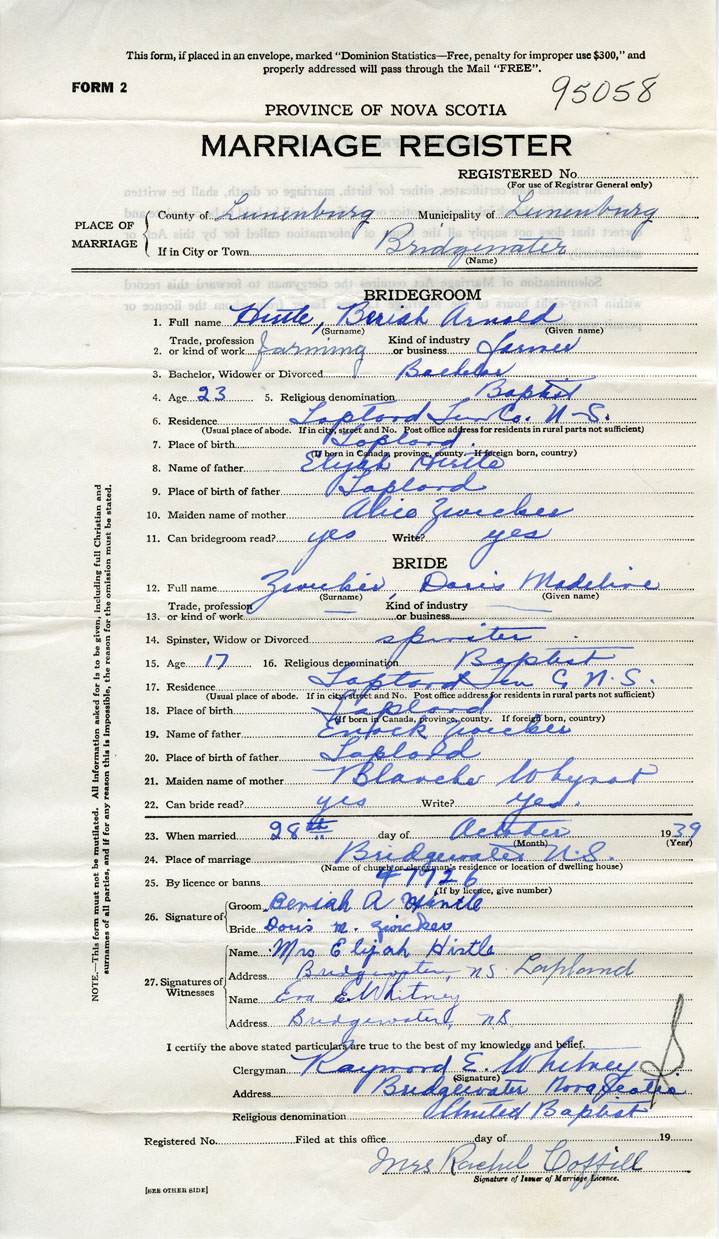 This form, if placed in an envelope, marked "Dominion Statistics—Free, penalty for improper use $300," and
properly addressed will pass through the Mail "FREE".
FORM 2
95058
PROVINCE OF NOVA SCOTIA
MARRIAGE REGISTER
REGISTERED No.
(For use of Registrar General only)
PLACE OF MARRIAGE
County of Lunenburg Municipality of Lunenburg
If in City or Town Bridgewater
(Name)
BRIDEGROOM
1. Full name Hirtle, Beriah Arnold
(Surname) (Given name)
2. Trade, profession or kind of work farming Kind of industry or business farmer
3. Bachelor, Widower or Divorced Bachelor
4. Age 23 5. Religious denomination Baptist
6. Residence Lapland Lun Co. N-S.
(Usual place of abode. If in city, street and No. Post office address for residents in rural parts not sufficient)
7. Place of birth Lapland.
(If born in Canada, province, county. If foreign born, country)
8. Name of father Elijah Hirtle
9. Place of birth of father Lapland
10. Maiden name of mother Alice Zwicker
11. Can bridegroom read? yes Write? yes
BRIDE
12. Full name Zwicker, Doris Madeline
(Surname) (Given name)
13. Trade, profession or kind of work — Kind of industry or business —
14. Spinster, Widow or Divorced spinster
15. Age 17 16. Religious denomination Baptist
17. Residence Lapland Lun C N.S.
(Usual place of abode. If in city, street and No. Post office address for residents in rural parts not sufficient)
18. Place of birth Lapland
(If born in Canada, province, county. If foreign born, country)
19. Name of father Enock Zwicker
20. Place of birth of father Lapland
21. Maiden name of mother Blanche Whynot
22. Can bride read? yes Write? yes.
23. When married 28th day of October 1939
(Month) (Year)
24. Place of marriage Bridgewater N.S.
(Name of church or clergyman's residence or location of dwelling house)
25. By licence or banns 47726
(If by licence, give number)
26. Signature of
Groom Beriah A Hirtle
Bride Doris M. Zwicker
27. Signatures of Witnesses
Name Mrs Elijah Hirtle
Address Bridgewater, NS Lapland
Name Eva E. Whitney
Address Bridgewater, NS
I certify the above stated particulars are true to the best of my knowledge and belief.
Clergyman Raymond E. Whitney
(Signature)
Address Bridgewater Nova Scotia
Religious denomination United Baptist
Registered No. Filed at this office day of 19
Mrs Rachel Coffill
Signature of Issuer of Marriage Licence.
[SEE OTHER SIDE]
NOTE.—This form must not be mutilated. All information asked for is to be given, including full Christian and
surnames of all parties, and if for any reason this is impossible, the reason for the omission must be stated.